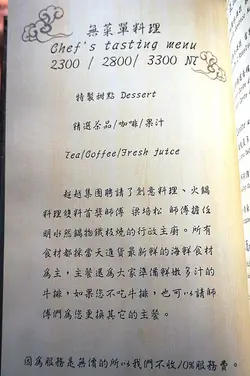 無菜單料理
Chef's tasting menu
2300 / 2800/ 3300 NT
特製甜點 Dessert
精選茶品/咖啡/果汁
Tea/Coffee/Fresh juice
赵赵集團聘請了創意料理、火鍋
料理雙料首獎師傅 梁培松 師傅擔任
明水然鍋物鐵板燒的行政主廚。所有
食材都採當天進貨最新鮮的海鮮食材
為主，主餐還為大家準備鮮嫩多汁的
牛排，如果您不吃牛排，也可以請師
傅們為您更換其它的主餐。
因為服務是無價的所以我們不收10%服務費。